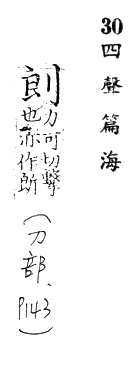 30 四聲篇海
㓪 力可切擊
也亦作
(刀部、P143)